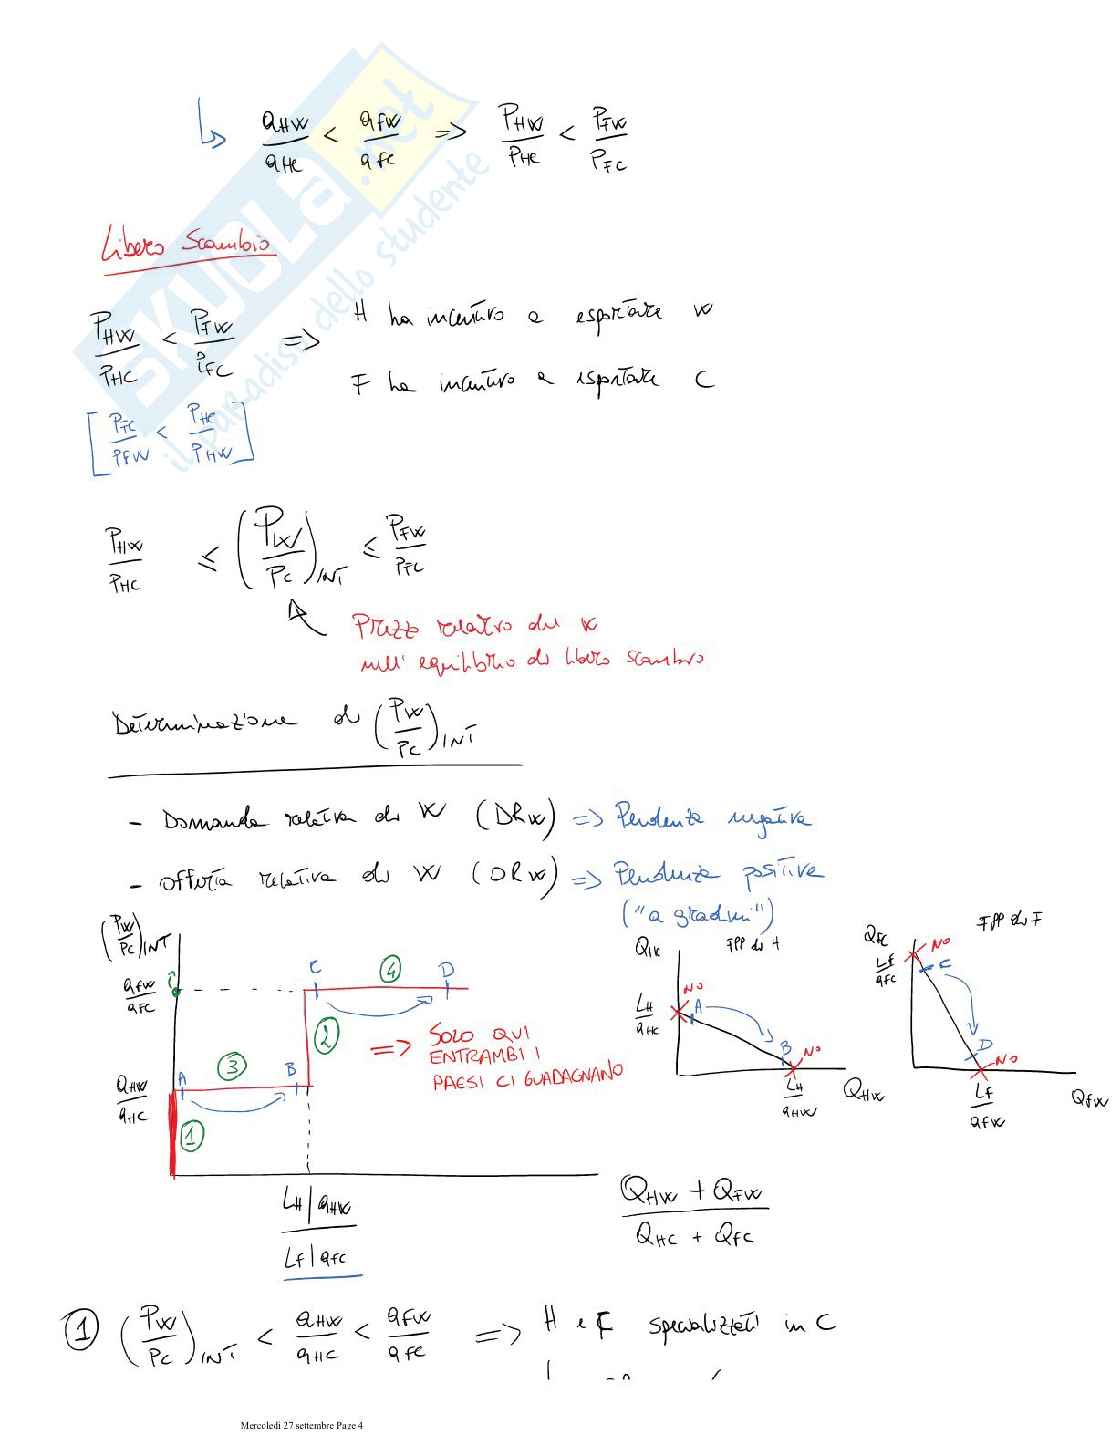 ↳ a_HW/a_HC < a_FW/a_FC => P_HW/P_HC < P_FW/P_FC
Libero Scambio
P_HW/P_HC < P_FW/P_FC => H ha incentivo a esportare W
F ha incentivo a esportare C
[P_FC/P_FW < P_HC/P_HW]
P_HW/P_HC ≤ (P_W/P_C)_INT ≤ P_FW/P_FC
Prezzo relativo di W
nell'equilibrio di libero scambio
Determinazione di (P_W/P_C)_INT
- Domanda relativa di W (DR_W) => Pendenza negativa
- Offerta relativa di W (OR_W) => Pendenza positiva
("a gradini")
(P_W/P_C)_INT
a_FW/a_FC
C
4
D
2
=> SOLO QUI
ENTRAMBI I
PAESI CI GUADAGNANO
a_HW/a_HC
A
3
B
1
L_H/a_HW
L_F/a_FC
Q_HW + Q_FW
Q_HC + Q_FC
FPP di H
NO
L_H/a_HC
A
B
NO
L_H/a_HW
Q_HW
Q_FC
FPP di F
NO
L_F/a_FC
C
D
NO
L_F/a_FW
Q_FW
1 (P_W/P_C)_INT < a_HW/a_HC < a_FW/a_FC => H e F specializzati in C
Mercoledì 27 settembre Page 4
SKUOLA.net
il paradiso dello studente